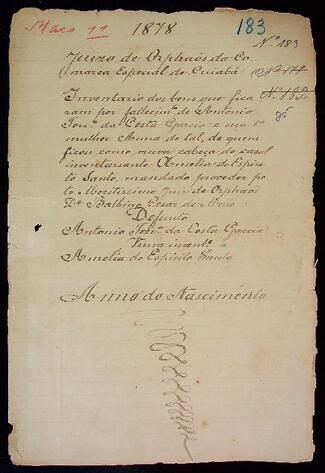 Maço 11
1878
183
Nº 183
Juizo de Orphãos da Co
marca Especial de Cuiabá
Nº 172
Inventario dos bens que fica
ram por fallecimº de Antonio
da Costa Garcia e sua 1ª
mulher Anna de tal, de quem
ficou como viuva cabeça de casal
inventariante Amelia do Espiri
to Santo, mandado proceder pe
lo Meritissimo Juiz de Orphãos
Dr Balbino Cesar de
Defunto
Antonio da Costa Garcia
Viuva invente
Amelia do Espirito Santo
Anno do Nascimento